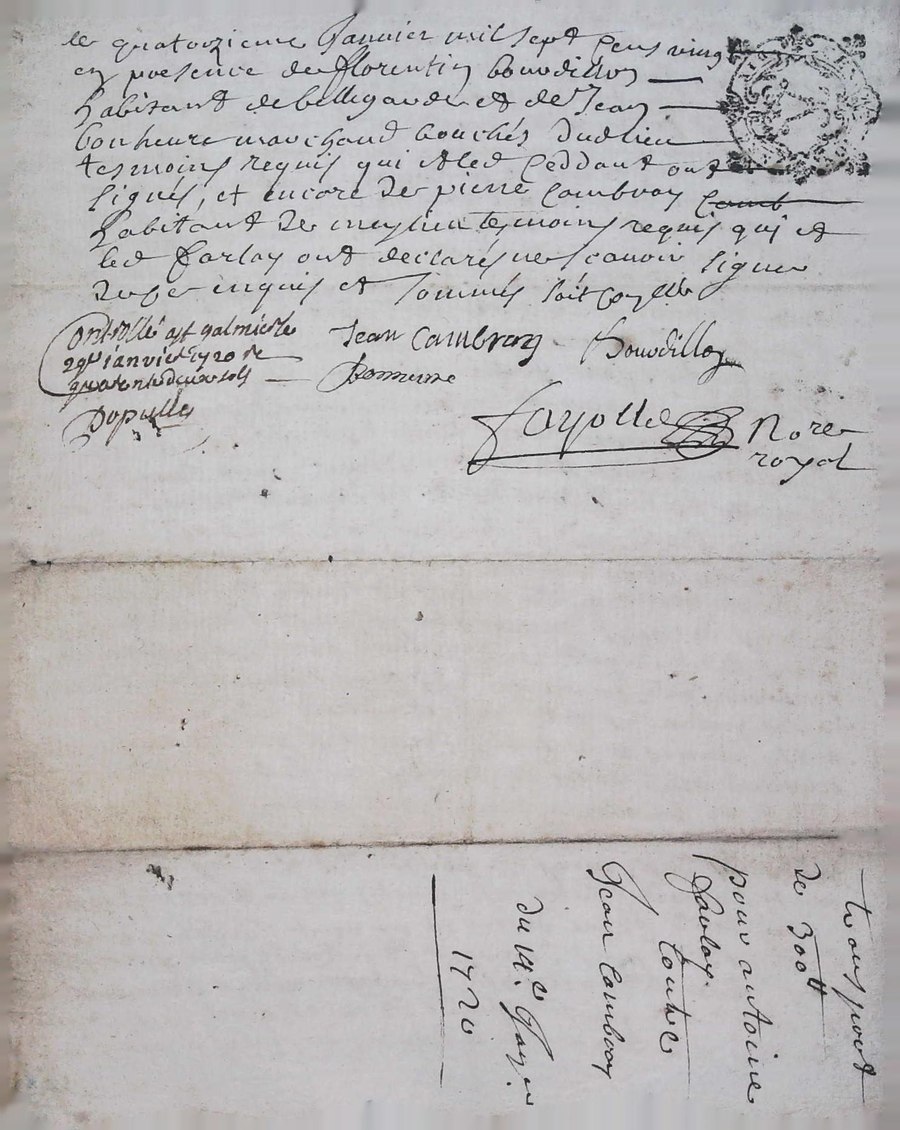 le quatorzieme Janvier mil sept Cens ving
en presence de florentin bourdillon
habitant de bellegarde et de Jean
bonheure marchand bouchés dudlieu
tesmoins requis qui et led Ceddant ont
signés, et encore de pierre Cambray
habitant de tesmoins requis qui et
led farlay ont declarés ne scavoir signer
de ce enquis et sommés
Controllé a st galmier le
29e janvier 1720 Re
quarente deux sols
Jean Cambray
Bourdillon
Bonneure
Dupuller
fayolle Nore
royal
transport
de 300tt
pour antoine
farlay
Contre
Jean Cambray
du 14e Janr
1720